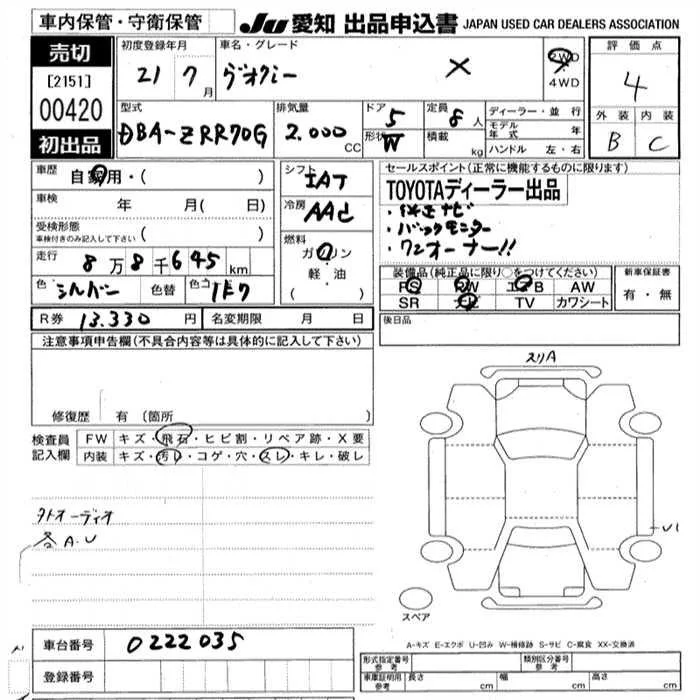 車内保管・守衛保管
JU 愛知 出品申込書 JAPAN USED CAR DEALERS ASSOCIATION
売切
[2151]
00420
初出品
初度登録年月
21 7月
車名・グレード
ヴォクシー X
2WD
・
4WD
評価点
4
外装 内装
B C
型式
DBA-ZRR70G
排気量
2.000 CC
ドア 5
形状 W
定員 8人
積載 kg
ディーラー・並行
モデル年式 年
ハンドル 左・右
車歴 自家用・( )
車検 年 月( 日)
受検形態
車検付きのみ記入して下さい ( )
走行 8万8千645km
色 シルバー 色替 色コ 1F7
シフト IAT
冷房 AAC
燃料
ガソリン
軽・油
( )
セールスポイント(正常に機能するものに限ります)
TOYOTAディーラー出品
・純正ナビ
・バックモニター
・ワンオーナー!!
装備品(純正品に限り○をつけてください)
PS PW エアB AW
SR ナビ TV カワシート
新車保証書
有・無
R券 13.330円 名変期限 月 日
後日品
注意事項申告欄(不具合内容等は具体的に記入して下さい)
修復歴 有(箇所 )
検査員記入欄
FW キズ・飛石・ヒビ割・リペア跡・X要
内装 キズ・汚レ・コゲ・穴・スレ・キレ・破レ
外オーディオ
各A.U
スリA
U1
スペア
A-キズ E-エクボ U-凹み W-補修跡 S-サビ C-腐食 XX-交換済
車台番号 0222035
登録番号
形式指定番号 参考
類別区分番号 参考
車庫証明用 参考 長さ cm 幅 cm 高さ cm